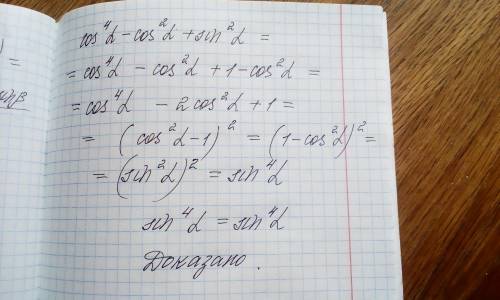 cos⁴α - cos²α + sin²α =
= cos⁴α - cos²α + 1 - cos²α =
= cos⁴α - 2cos²α + 1 =
= (cos²α - 1)² = (1 - cos²α)² =
= (sin²α)² = sin⁴α
sin⁴α = sin⁴α
Доказано.